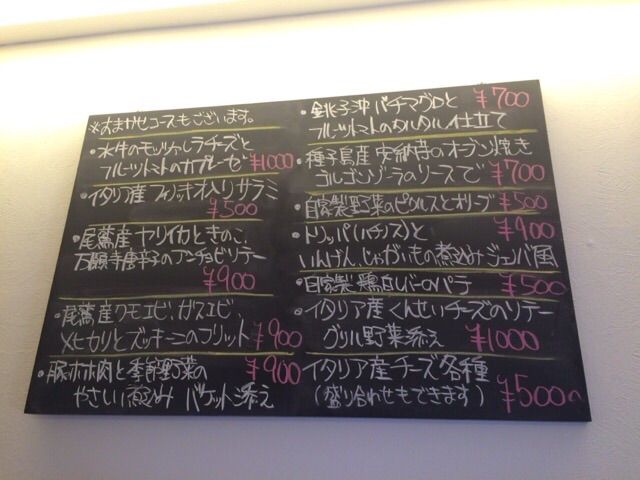 ※おまかせコースもございます。
・水牛のモッツァレラチーズと
フルーツトマトのカプレーゼ ¥1000
・イタリア産フィノッキオ入りサラミ
¥500
・尾鷲産ヤリイカときのこ、
万願寺唐辛子のアンチョビソテー
¥900
・尾鷲産クモエビ、ガスエビ、
メヒカリとズッキーニのフリット ¥900
・豚ホホ肉と季節野菜の ¥900
やさしい煮込み バケット添え
・銚子沖バチマグロと ¥700
フルーツトマトのタルタル仕立て
・種子島産安納芋のオーブン焼き
ゴルゴンゾーラのソースで ¥700
・自家製野菜のピクルスとオリーブ ¥500
・トリッパ(ハチノス)と ¥900
いんげん、じゃがいもの煮込みジェノバ風
・自家製鶏白レバーのパテ ¥500
・イタリア産くんせいチーズのソテー
グリル野菜添え ¥1000
・イタリア産チーズ各種
(盛り合わせもできます) ¥500〜